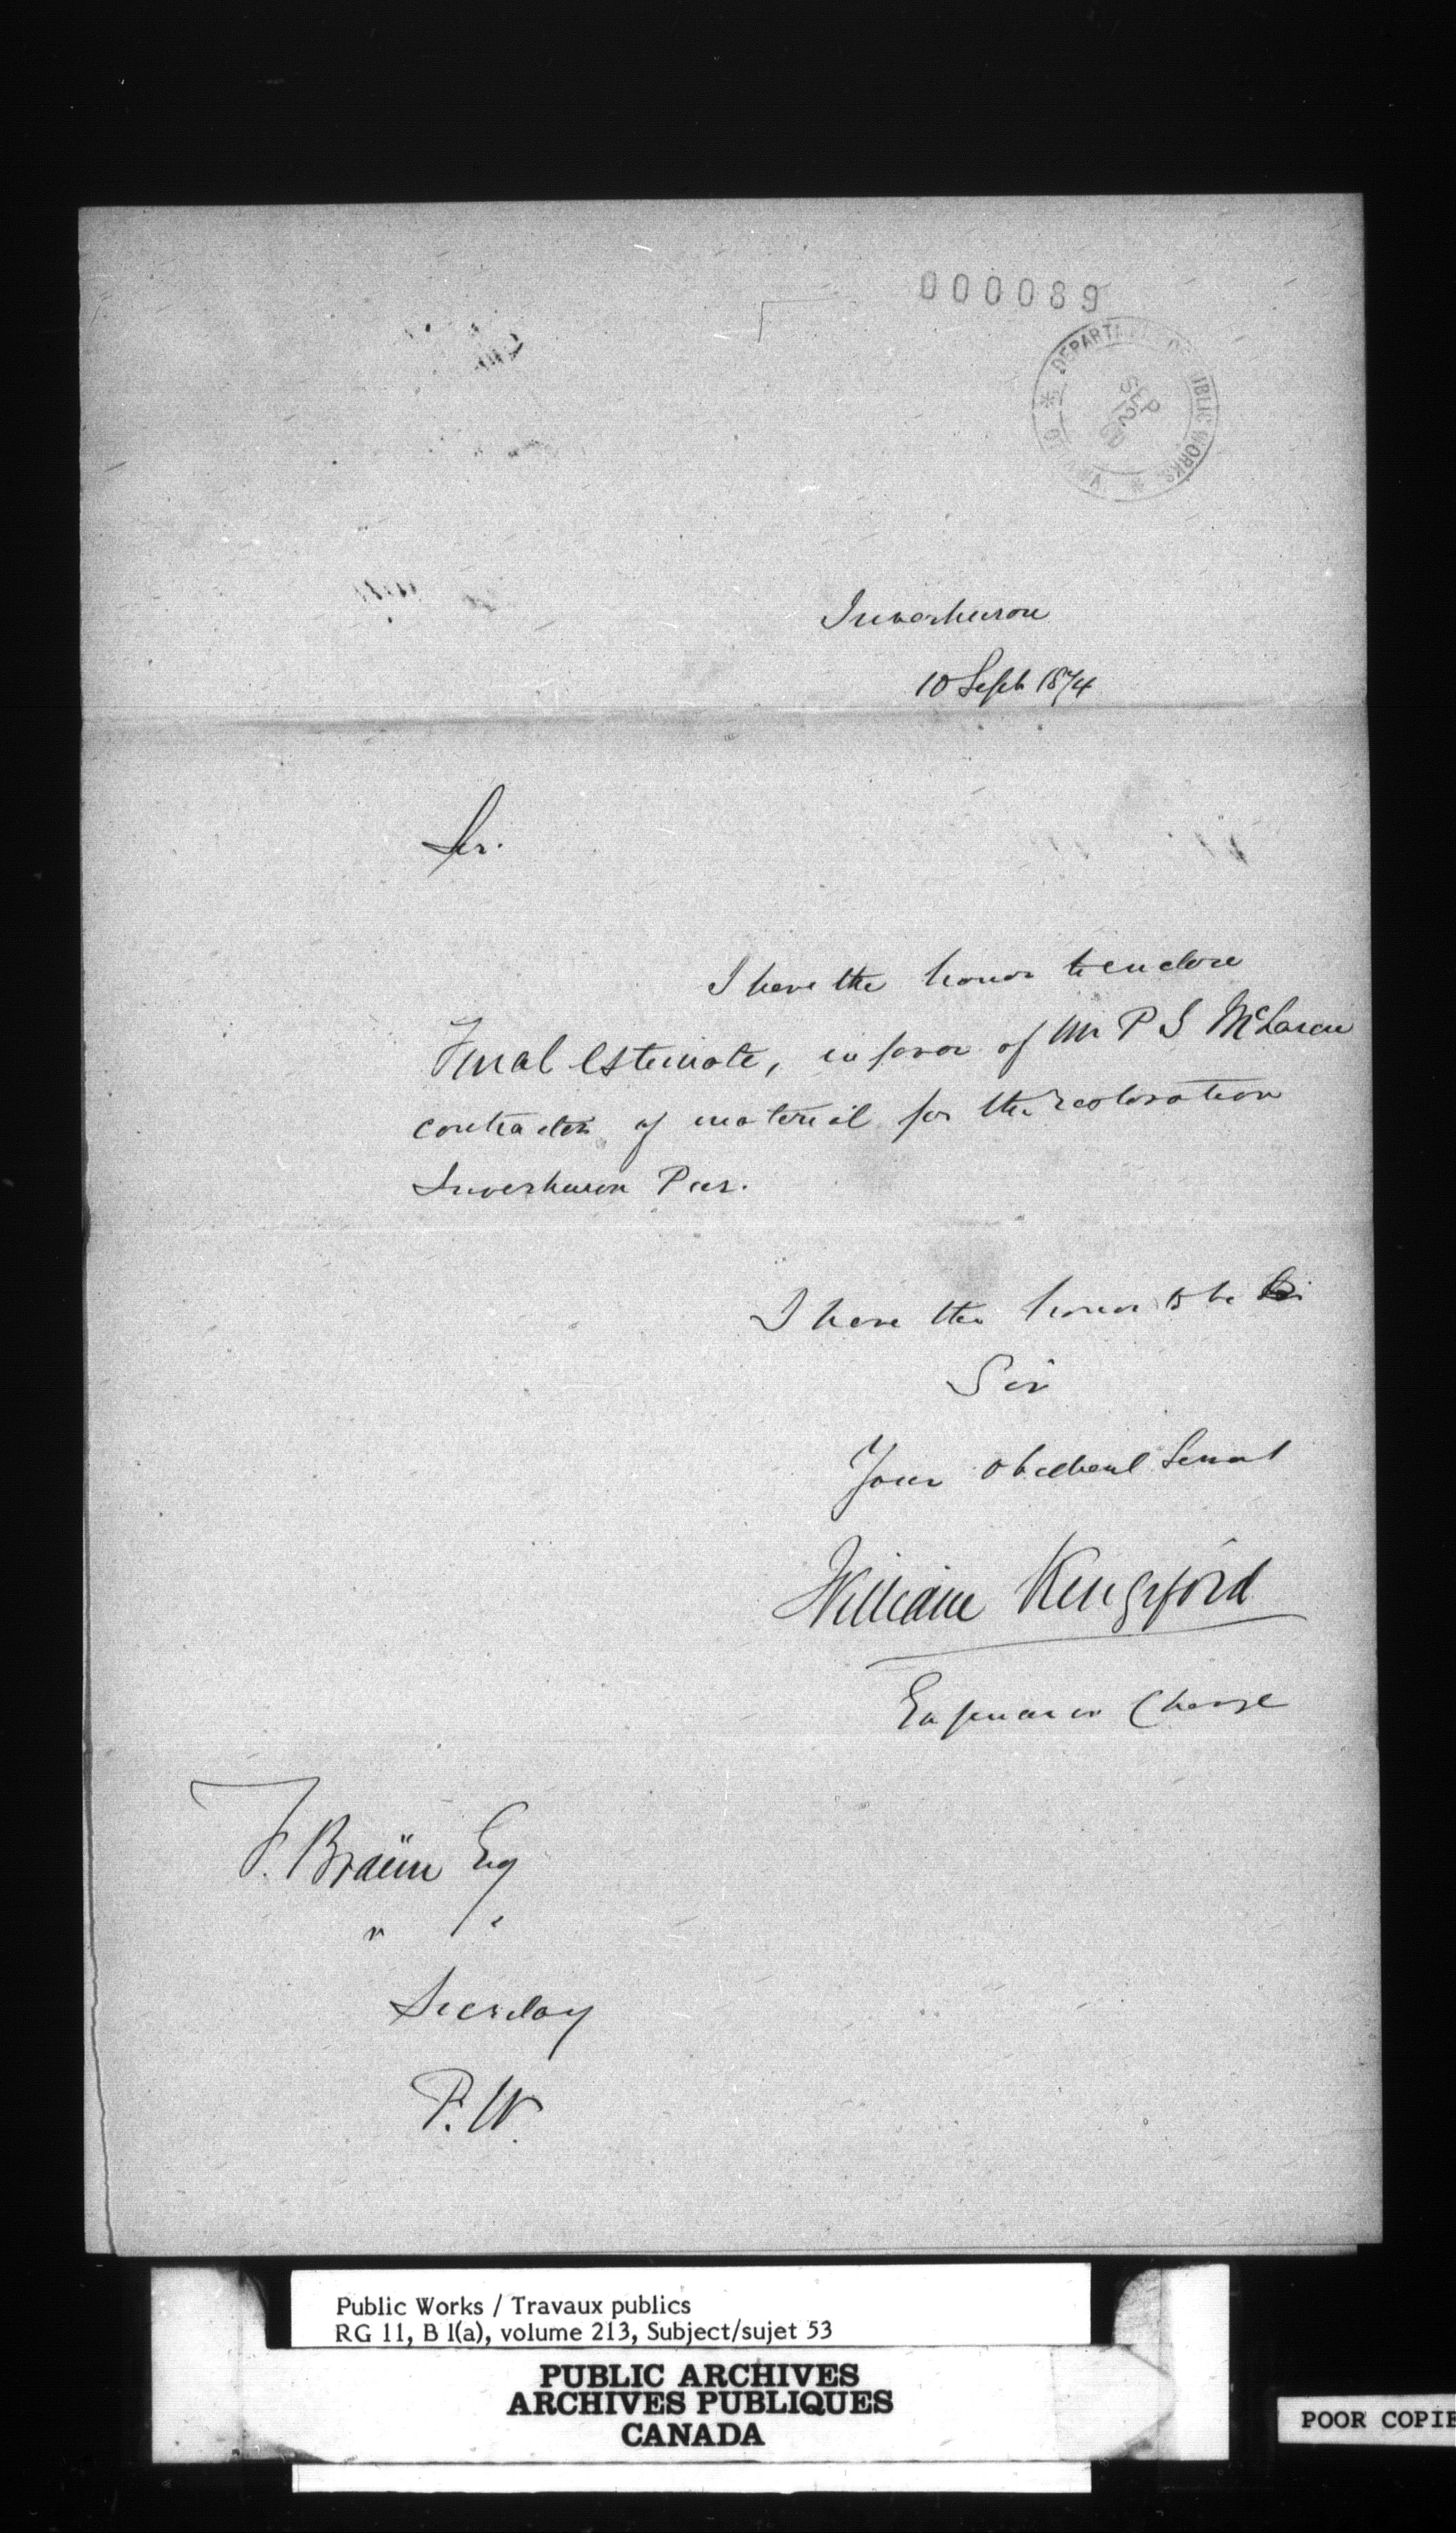 000089
DEPARTM PUBLIC WORKS
SEP
12
Inverhuron
10 Sept 1874
Sir.
I have the honor to enclose
Final estimate, in favor of Mr P S McLaren
contractor of material for the restoration
Inverhuron Pier.
I have the honor to be
Sir
Your obedient Servant
William Kingsford
Engineer in Charge
F. Braün Esq
" "
Secretary
P.W.
Public Works / Travaux publics
RG 11, B 1(a), volume 213, Subject/sujet 53
PUBLIC ARCHIVES
ARCHIVES PUBLIQUES
CANADA
POOR COPIE